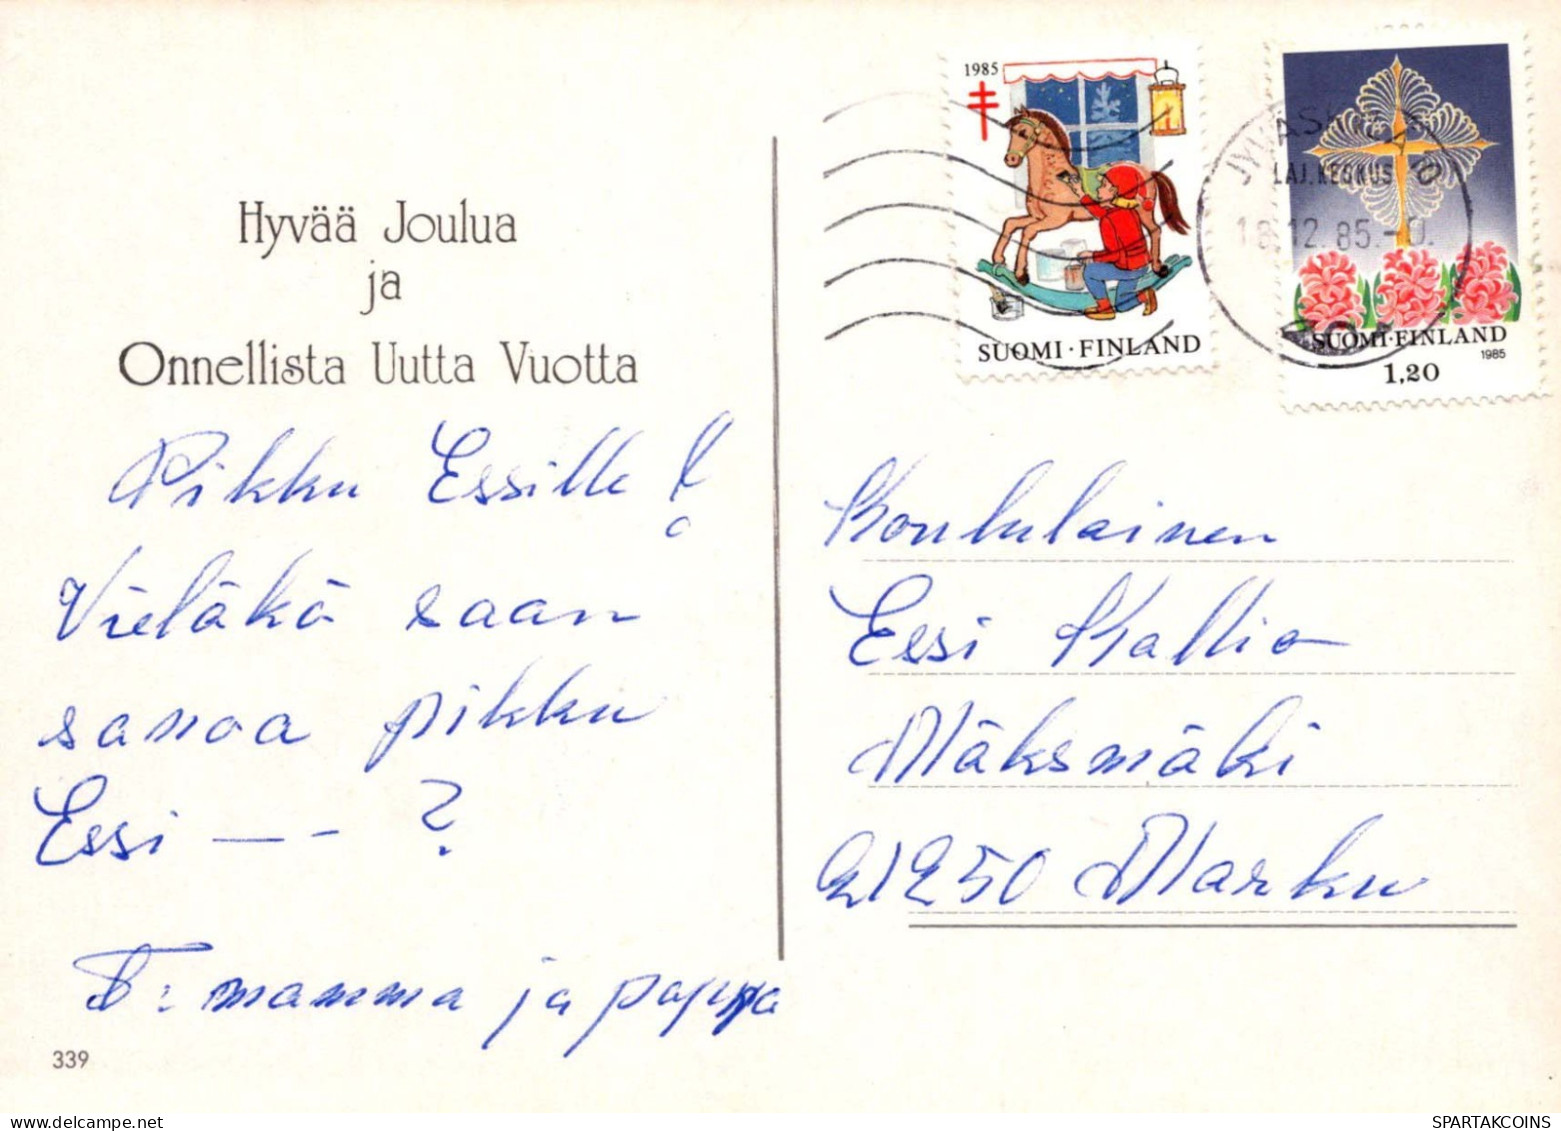 Hyvää Joulua
ja
Onnellista Uutta Vuotta
Pikku Essille!
Vieläkö saan
sanoa pikku
Essi — - ?
T: mamma ja pappa
339
1985
SUOMI·FINLAND
LAJ.KESKUS
12.85.-
SUOMI·FINLAND
1985
1,20
Koululainen
Essi Kallio
Mäksmäki
21250 Masku
SPARTAKCOINS